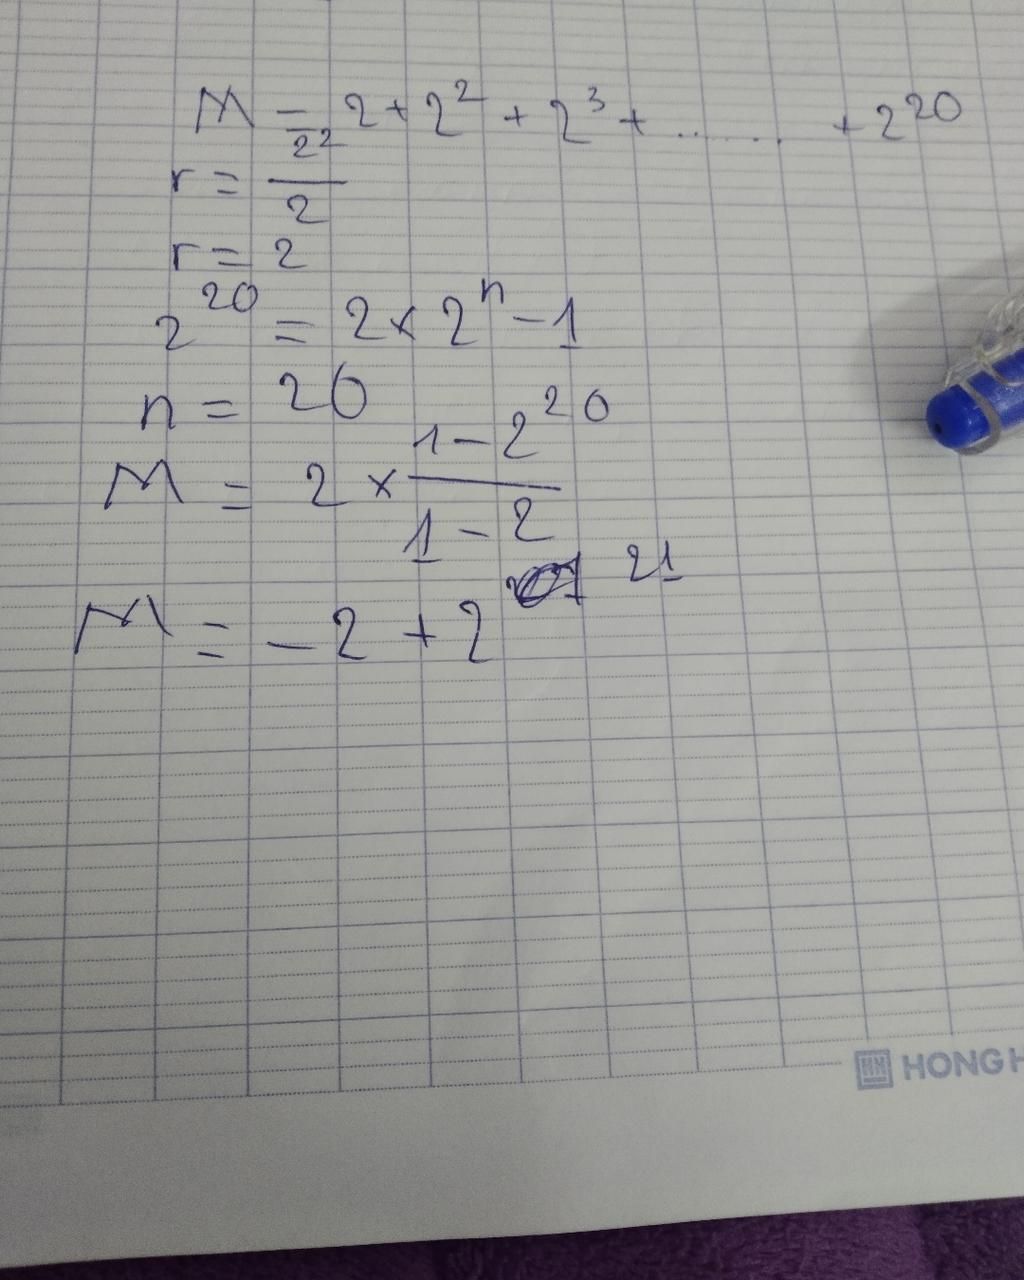 M = 2 + 2² + 2³ + ........ + 2²⁰
r = 2²/2
r = 2
2²⁰ = 2 × 2ⁿ - 1
n = 20
M = 2 × (1 - 2²⁰)/(1 - 2)
M = -2 + 2²¹
HONG H